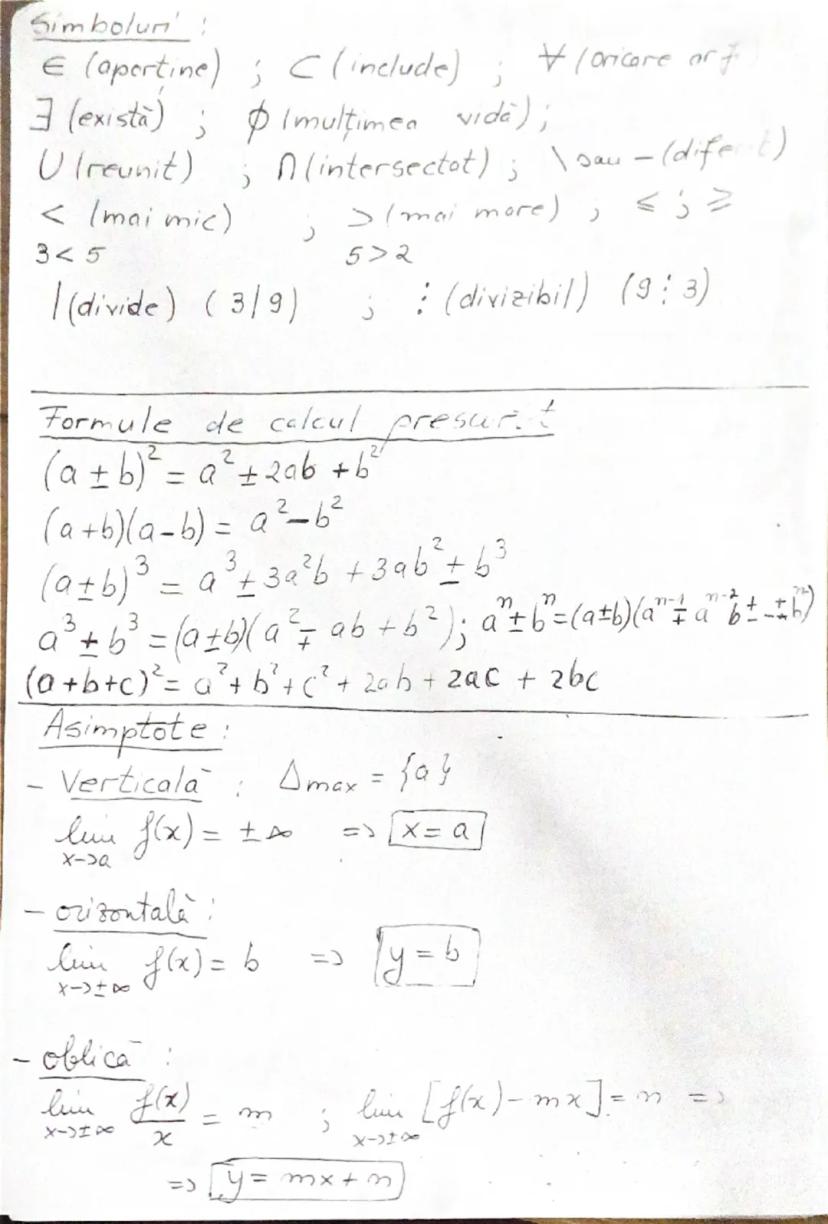 Simboluri :
∈ (aparține) ; ⊂ (include) ; ∀ (oricare ar f
∃ (există) ; ϕ (mulțimea vidă) ;
U (reunit) ; ∩ (intersectat) ; \ sau - (dife t)
< (mai mic) ; > (mai mare) ; ≤ ; ≥
3 < 5 5 > 2
| (divide) ( 3 | 9 ) ; ⋮ (divizibil) (9 ⋮ 3)
Formule de calcul presur.t
(a ± b)² = a² ± 2ab + b²
(a + b)(a - b) = a² - b²
(a ± b)³ = a³ ± 3a²b + 3ab² ± b³
a³ ± b³ = (a ± b)(a² ∓ ab + b²) ; aⁿ ± bⁿ = (a ± b)(aⁿ⁻¹ ∓ aⁿ⁻² b ±
(a + b + c)² = a² + b² + c² + 2ab + 2ac + 2bc
Asimptote :
- Verticală : Δmax = {a}
lim f(x) = ± ∞ => x = a
x->a
- orizontală :
lim f(x) = b => y = b
x->±∞
- oblică :
lim f(x)/x = m ; lim [f(x) - mx] = n =>
x->±∞ x->±∞
=> y = mx + n